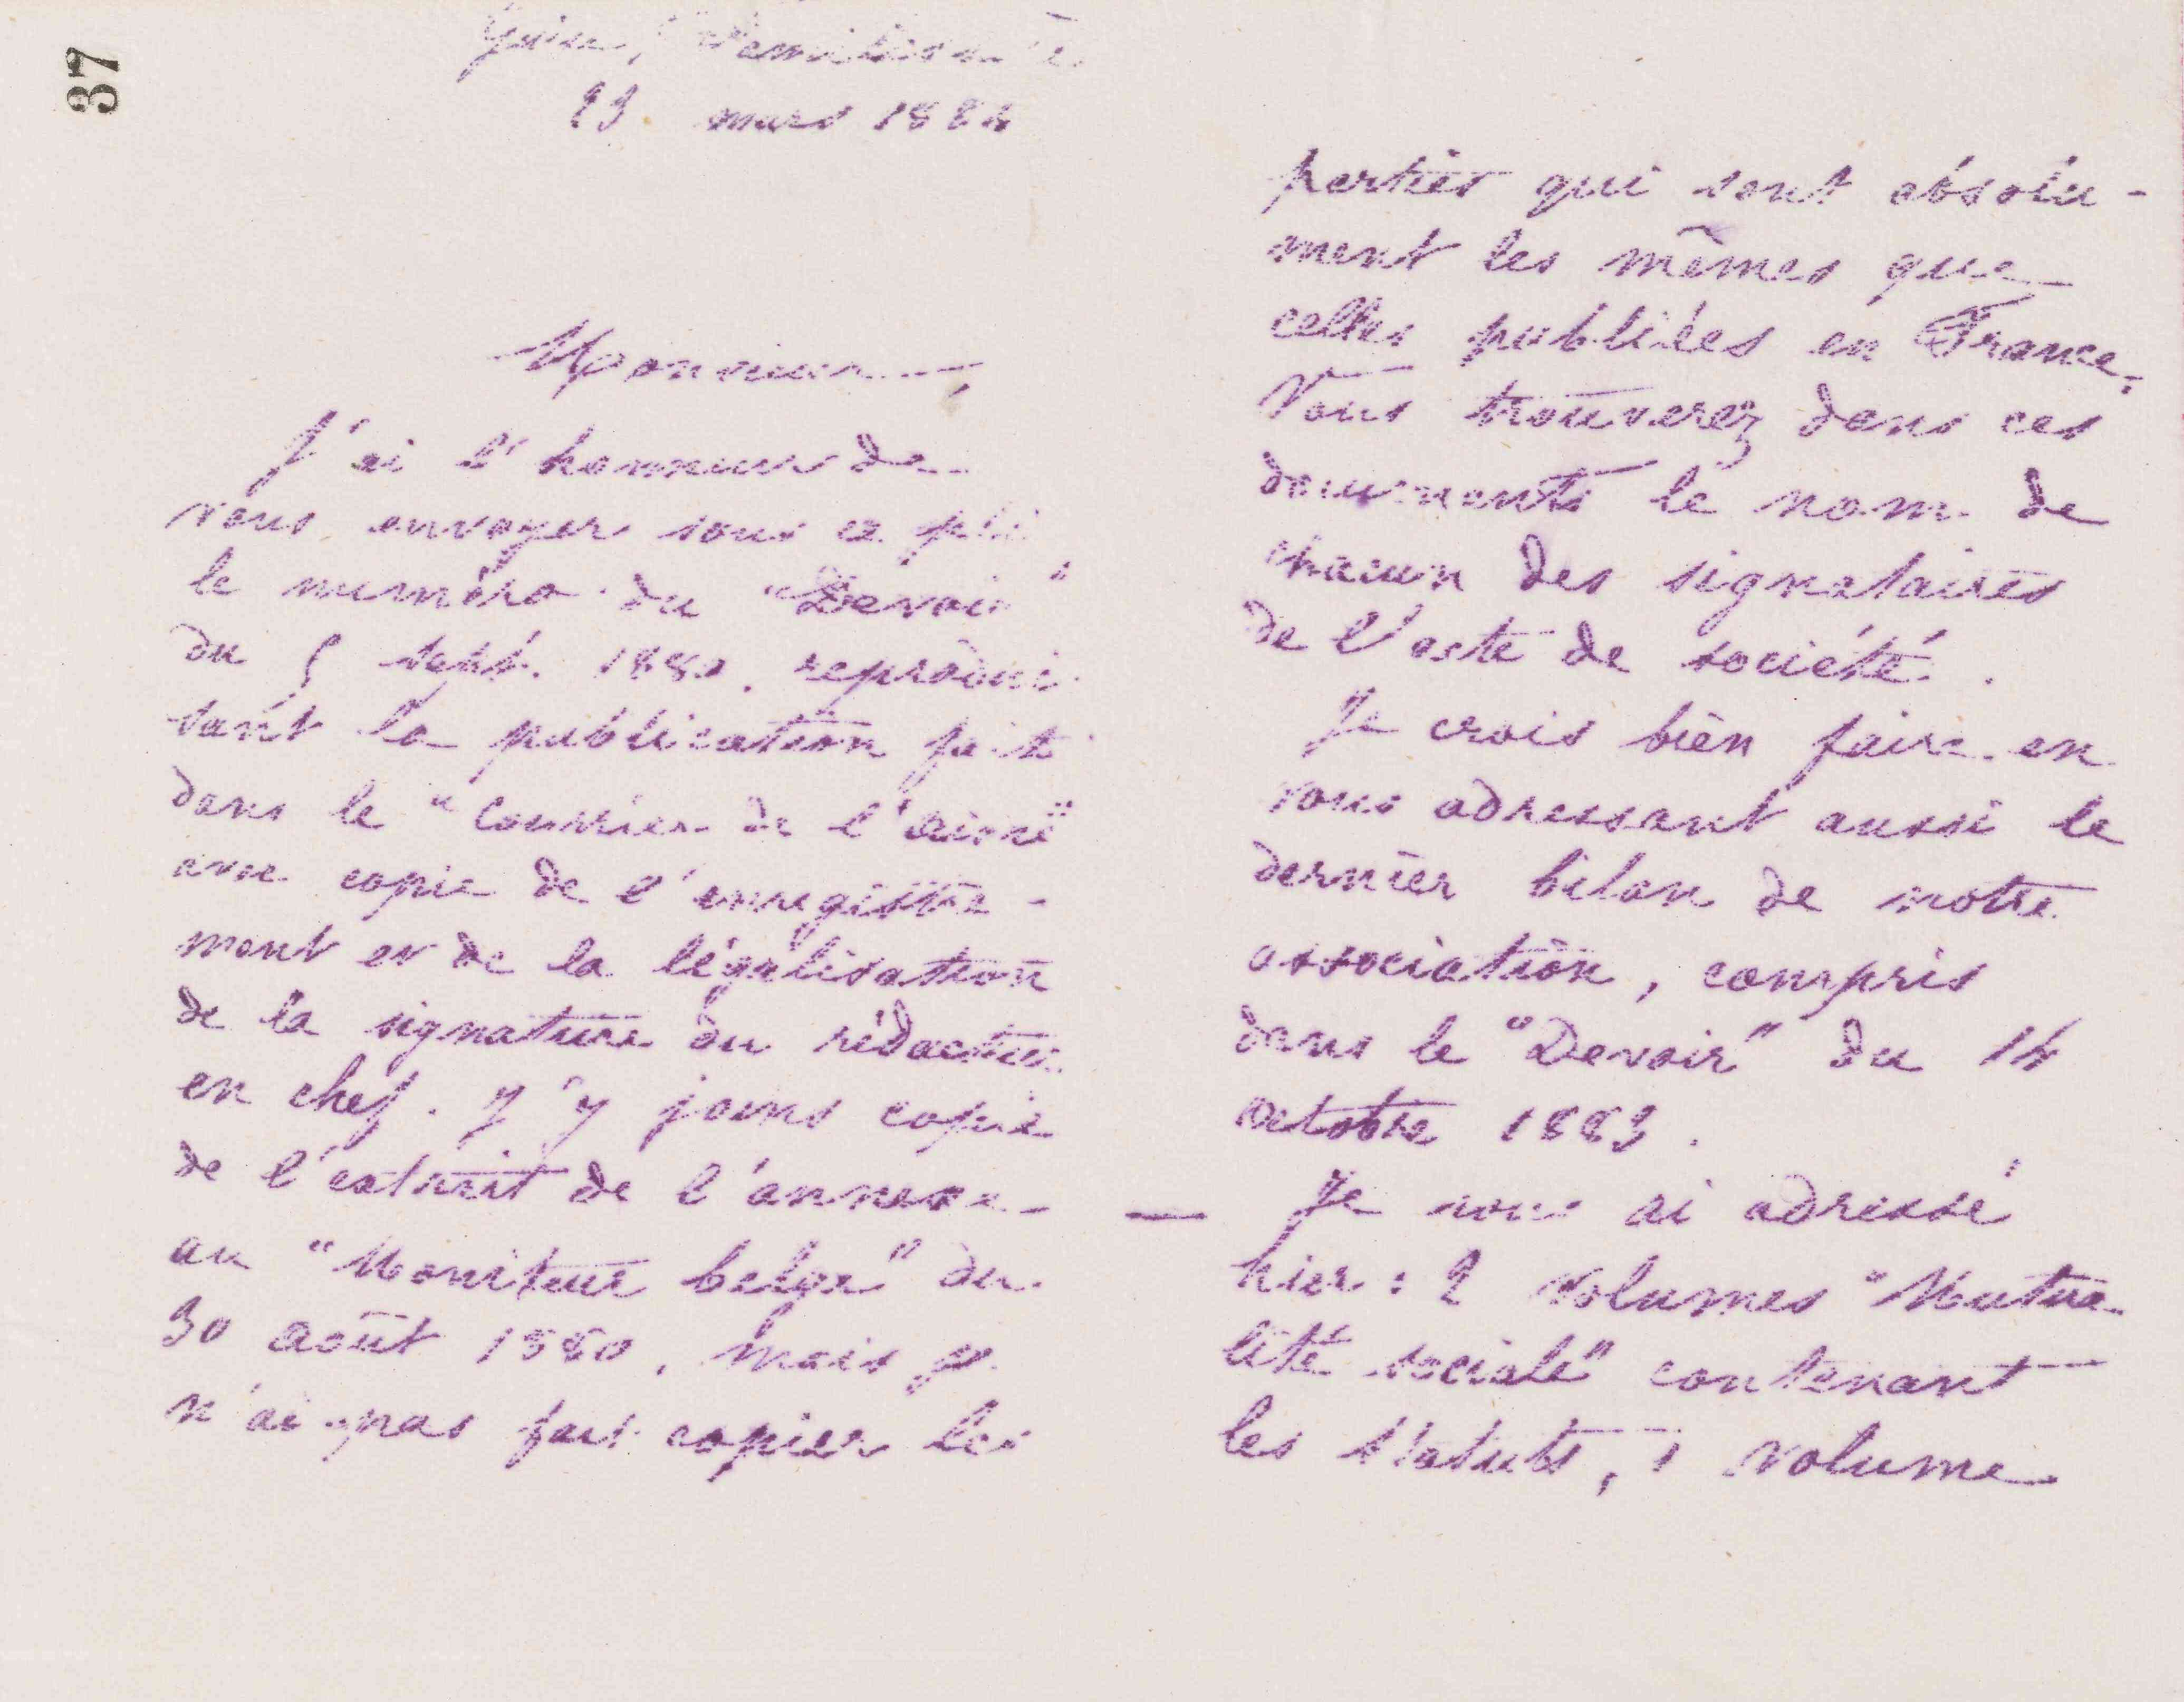 37
Guise, Familistère
23 mars 1884
Monsieur,
J'ai l'honneur de
vous envoyer sous ce pli
le numéro du "Devoir"
du 5 sept. 1880, reprodui-
sant la publication fait
dans le "Courrier de l'Aisne"
avec copie de l'enregistre-
ment et de la légalisation
de la signature du rédacteur
en chef. J'y joins copie
de l'extrait de l'annexe
au "Moniteur belge" du
30 août 1880, mais je
n'ai pas fait copier les
parties qui sont absolu-
ment les mêmes que
celles publiées en France.
Vous trouverez dans ces
documents le nom de
chacun des signataires
de l'acte de société.
Je crois bien faire en
vous adressant aussi le
dernier bilan de notre
association, compris
dans le "Devoir" du 14
octobre 1883.
— Je vous ai adressé
hier : 2 volumes "Mutua-
lité sociale" contenant
les statuts, 1 volume